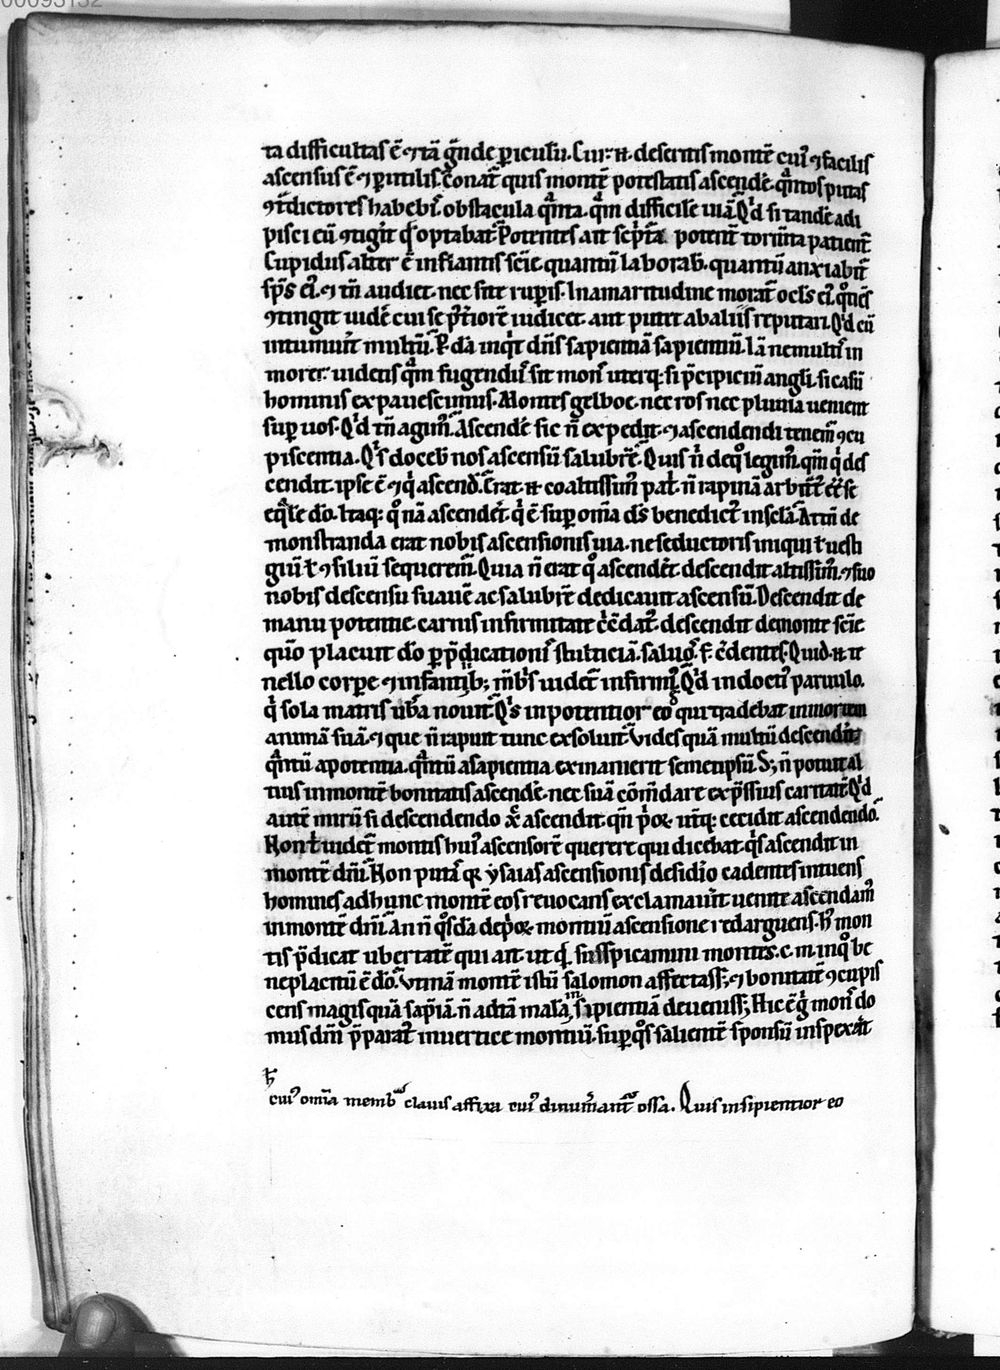 00093132
ta difficultas ē ⁊ tā g̃nde ꝑiculū. Cur. n̄. desertis montē cui⁹ ⁊ facilis
ascensus ē ⁊ ꝑutilis. Conat᷑ quis montē potestatis ascendẽ. q̃ntos putas
ꝯt᷑dictores habebit. obstacula q̃nta. q̃m difficilē uiā. Qͥd si tandē adi
pisci eū ꝯtigit qͩ optabat. Potentes ait sc̃pta potent᷑ torm̃ta patient᷑
Cupidus alter ē inflantis sciē. quantū laborab. quantū anxiabit᷑
sp̃s ei⁹. ⁊ tñ audiet. nec si te ruperis. In amaritudine morat᷑ ocl̃s ei⁹ qͦtiēs
ꝯtingit uidẽ cui se p̃t̃iorē iudicet. aut putet ab aliis reputari. Qͥd cū
intumuẽit multū. P̱dā inqͥt dñs sapientiā sapientiū. Iā ne multis in
morer. uidetis q̃m fugiendus sit mons uterq;. si p̃cipiciū angl̃i. si casū
hominis expauescimus. Montes gelboe. nec ros nec pluuia ueniant
suꝑ uos. Qͥd tñ agim⁹. Ascendẽ sic ñ expedit. ⁊ ascendendi tenem̃ ꝯcu
piscentia. Qͥs docebit nos ascensū salubrē. Quis ñ de qͦ legim⁹. qm̃ qͥ des
cendit. ipse ē ⁊ qͥ ascendit. Erat. n̄ coaltissim⁹ pat̃. ñ rapinā arbit̃t᷑ eẽ se
eq̃lē dõ. Itaq; qͦ nā ascendẽt. qͥ ē suꝑ om̃ia d̃s benedict⁹ in scla. At tñ de
monstranda erat nobis ascensionis uia. ne seductoris iniqui ꝉ uesti
giū ꝉ ꝯsiliū sequerem̃. Quia ñ erat qͦ ascendẽt descendit altissim⁹. ⁊ suo
nobis descensu suauē ac salubrē dedicauit ascensū. Descendit de
manu potentie. carnis infirmitate cͥcūdat⁹. descendit de monte sciē
quō placuit dõ ꝑ p̃dicationis stulticiā. saluos f. c̃dentes. Quid. n̄ te
nello corpe ⁊ infantilib; mb̃ris uidet᷑ infirmi⁹. Qͥd indocti⁹ paruulo.
qͥ sola matris ub̃a nouit. Qͥs inpotentior eo qui tradebat in mortem
animā suā. ⁊ que ñ rapuit tunc exsoluit. Vides quā multū descendit
qͣntū a potentia. qͣntū a sapientia. exinanierit semetipsū. S; ñ potuit al
tius in montē bonitatis ascendẽ. nec suā cōm̃dare exp̃ssius caritatē. Qͥd
autē mirū si descendendo xp̃c ascendit. qñ p̃or. ut̃q; cecidit ascendendo.
Non ꝉ uidet᷑ montis hui⁹ ascensorē querere qui dicebat. qͥs ascendit in
montē dñi. Non putas q; ysaias ascensionis desidio cadentes intuens
homines ad hunc montē eos reuocans exclamauit uenite ascendam⁹
in montē dñi. An ñ qͦsdā de p̃or. montiū ascensione redarguens. h⁹ mon
tis p̃dicat ubertatē qui ait. ut qͥd. suspicamini montes. c. m. in qͦ be
neplacitū ē dõ. Vtinā montē istū salomon affectass;. ⁊ bonitatē ꝯcupis
cens magis quā sapiā. ñ ad tā malā insipientiā deueniss;. Hic ē g̊ mons do
mus dñi p̃parat⁹ in uertice montiū. suꝑ qͦs salientē sponsū inspexit
ꝥ
cui⁹ om̃ia membra clauis affixa cui⁹ dinum̃antur ossa. Quis insipientior eo